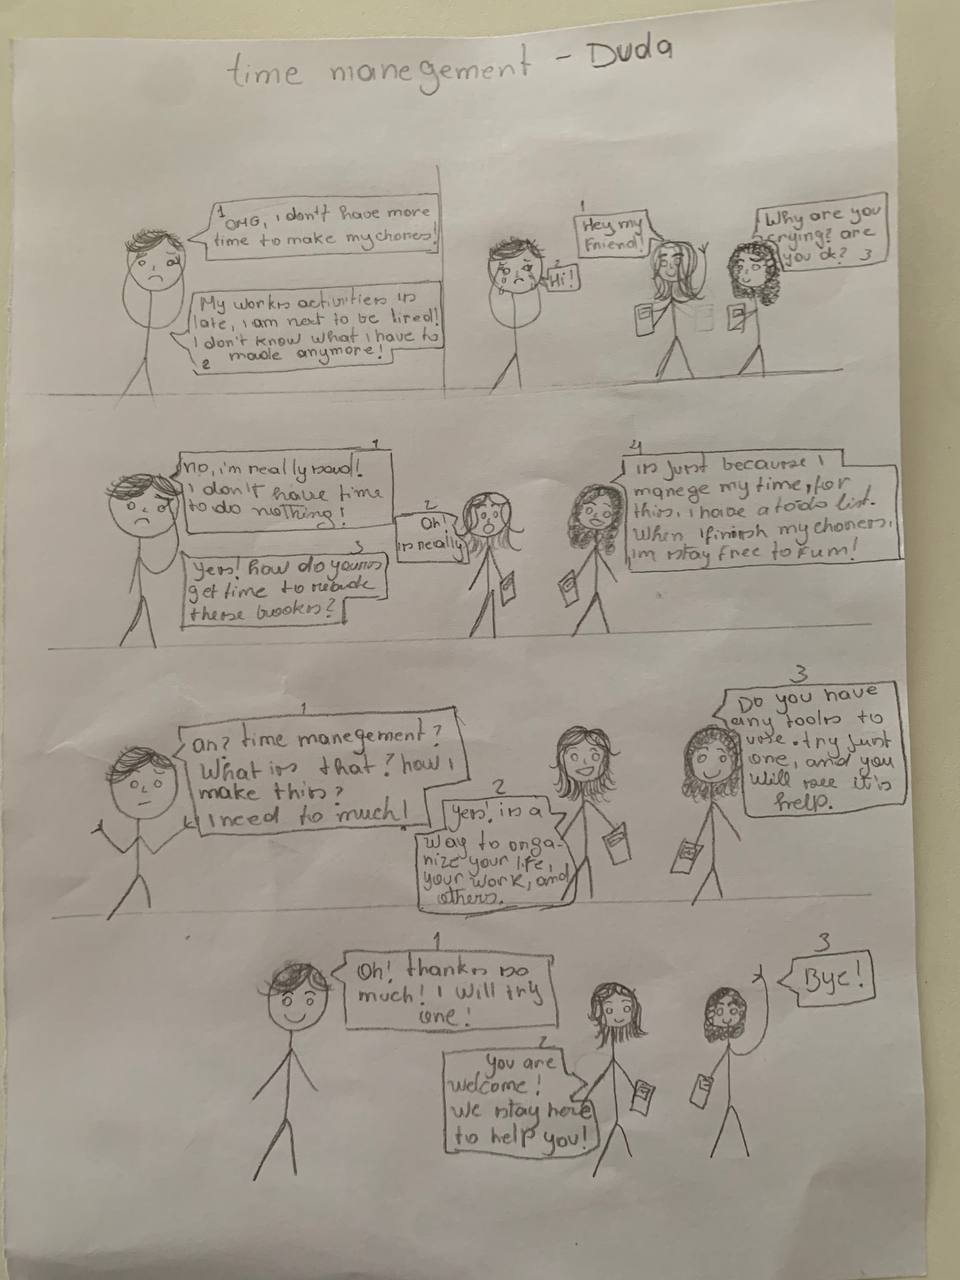 time manegement - Duda
1
OMG, i don't have more
time to make my chores!
My works activities is
late, i am next to be fired!
I don't know what i have to
made anymore!
2
1
Hey my
Friend!
2
Hi!
Why are you
crying? are
you ok? 3
1
no, i'm really sad!
i don't have time
to do nothing!
2
Oh!
is really
3
yes! how do yours
get time to
these books?
4
is just because i
manege my time, for
this, i have a to do list.
When i finish my chores,
im stay free to fum!
1
an? time manegement?
What is that? how i
make this?
I need to much!
2
yes! is a
way to orga-
nize your life,
your work, and
others.
3
Do you have
any tools to
use. try just
one, and you
will see it's
help.
1
Oh! thanks so
much! I will try
one!
2
you are
welcome!
we stay here
to help you!
3
Bye!